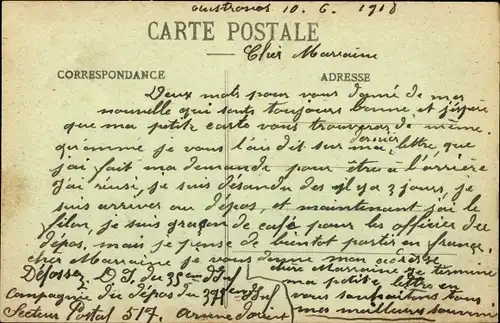 10. 6. 1918
CARTE POSTALE
Cher Marraine
CORRESPONDANCE
ADRESSE
Deux mots pour vous donné de mes
nouvelle qui sont toujours bonne et j'espère
que ma petite carte vous trouveras de même,
comme je vous l'ais dit sur ma dernier lettre, que
j'ai fait ma demande pour être à l'arrière
j'ai réusi, je suis désandu des il y a 3 jours, je
suis arriver au dépos, et maintenant j'ai le
filon, je suis graçon de café pour les officier du
dépos, mais je pense de bientot partir en france,
cher Marraine je vous donne mon adresse
Défossez D. J. du 35em
Compagnie du dépos du 371em
Secteur Postal 517. Armée d'orient
chère Marraine je termine
ma petite lettre en
vous souhaitons tous
mes meilleurs souvenir